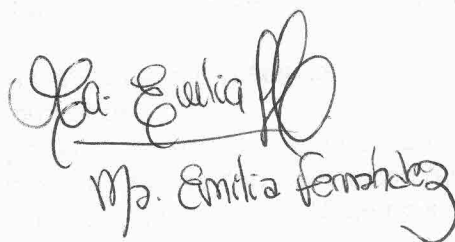 Ma. Emilia
Ma. Emilia Fernandez